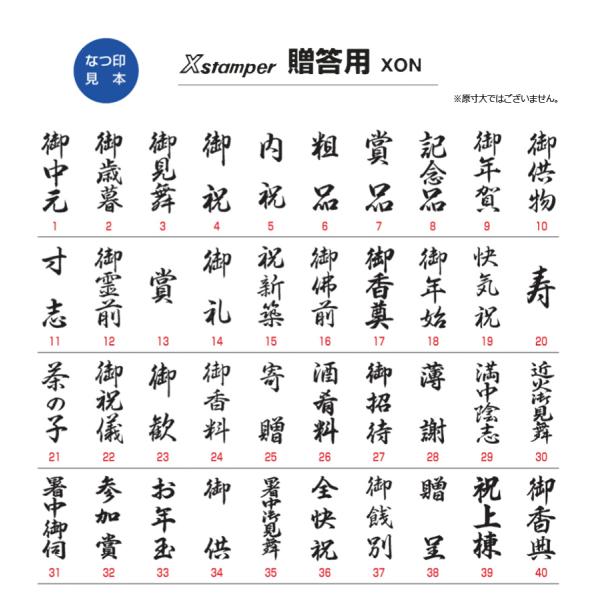 なつ印
見本
Xstamper 贈答用 XON
※原寸大ではございません。
御中元 御歳暮 御見舞 御祝 内祝 粗品 賞品 記念品 御年賀 御供物
1 2 3 4 5 6 7 8 9 10
寸志 御霊前 賞 御礼 祝新築 御佛前 御香奠 御年始 快気祝 寿
11 12 13 14 15 16 17 18 19 20
茶の子 御祝儀 御歓 御香料 寄贈 酒肴料 御招待 薄謝 満中陰志 近火御見舞
21 22 23 24 25 26 27 28 29 30
暑中御伺 参加賞 お年玉 御供 暑中御見舞 全快祝 御餞別 贈呈 祝上棟 御香典
31 32 33 34 35 36 37 38 39 40